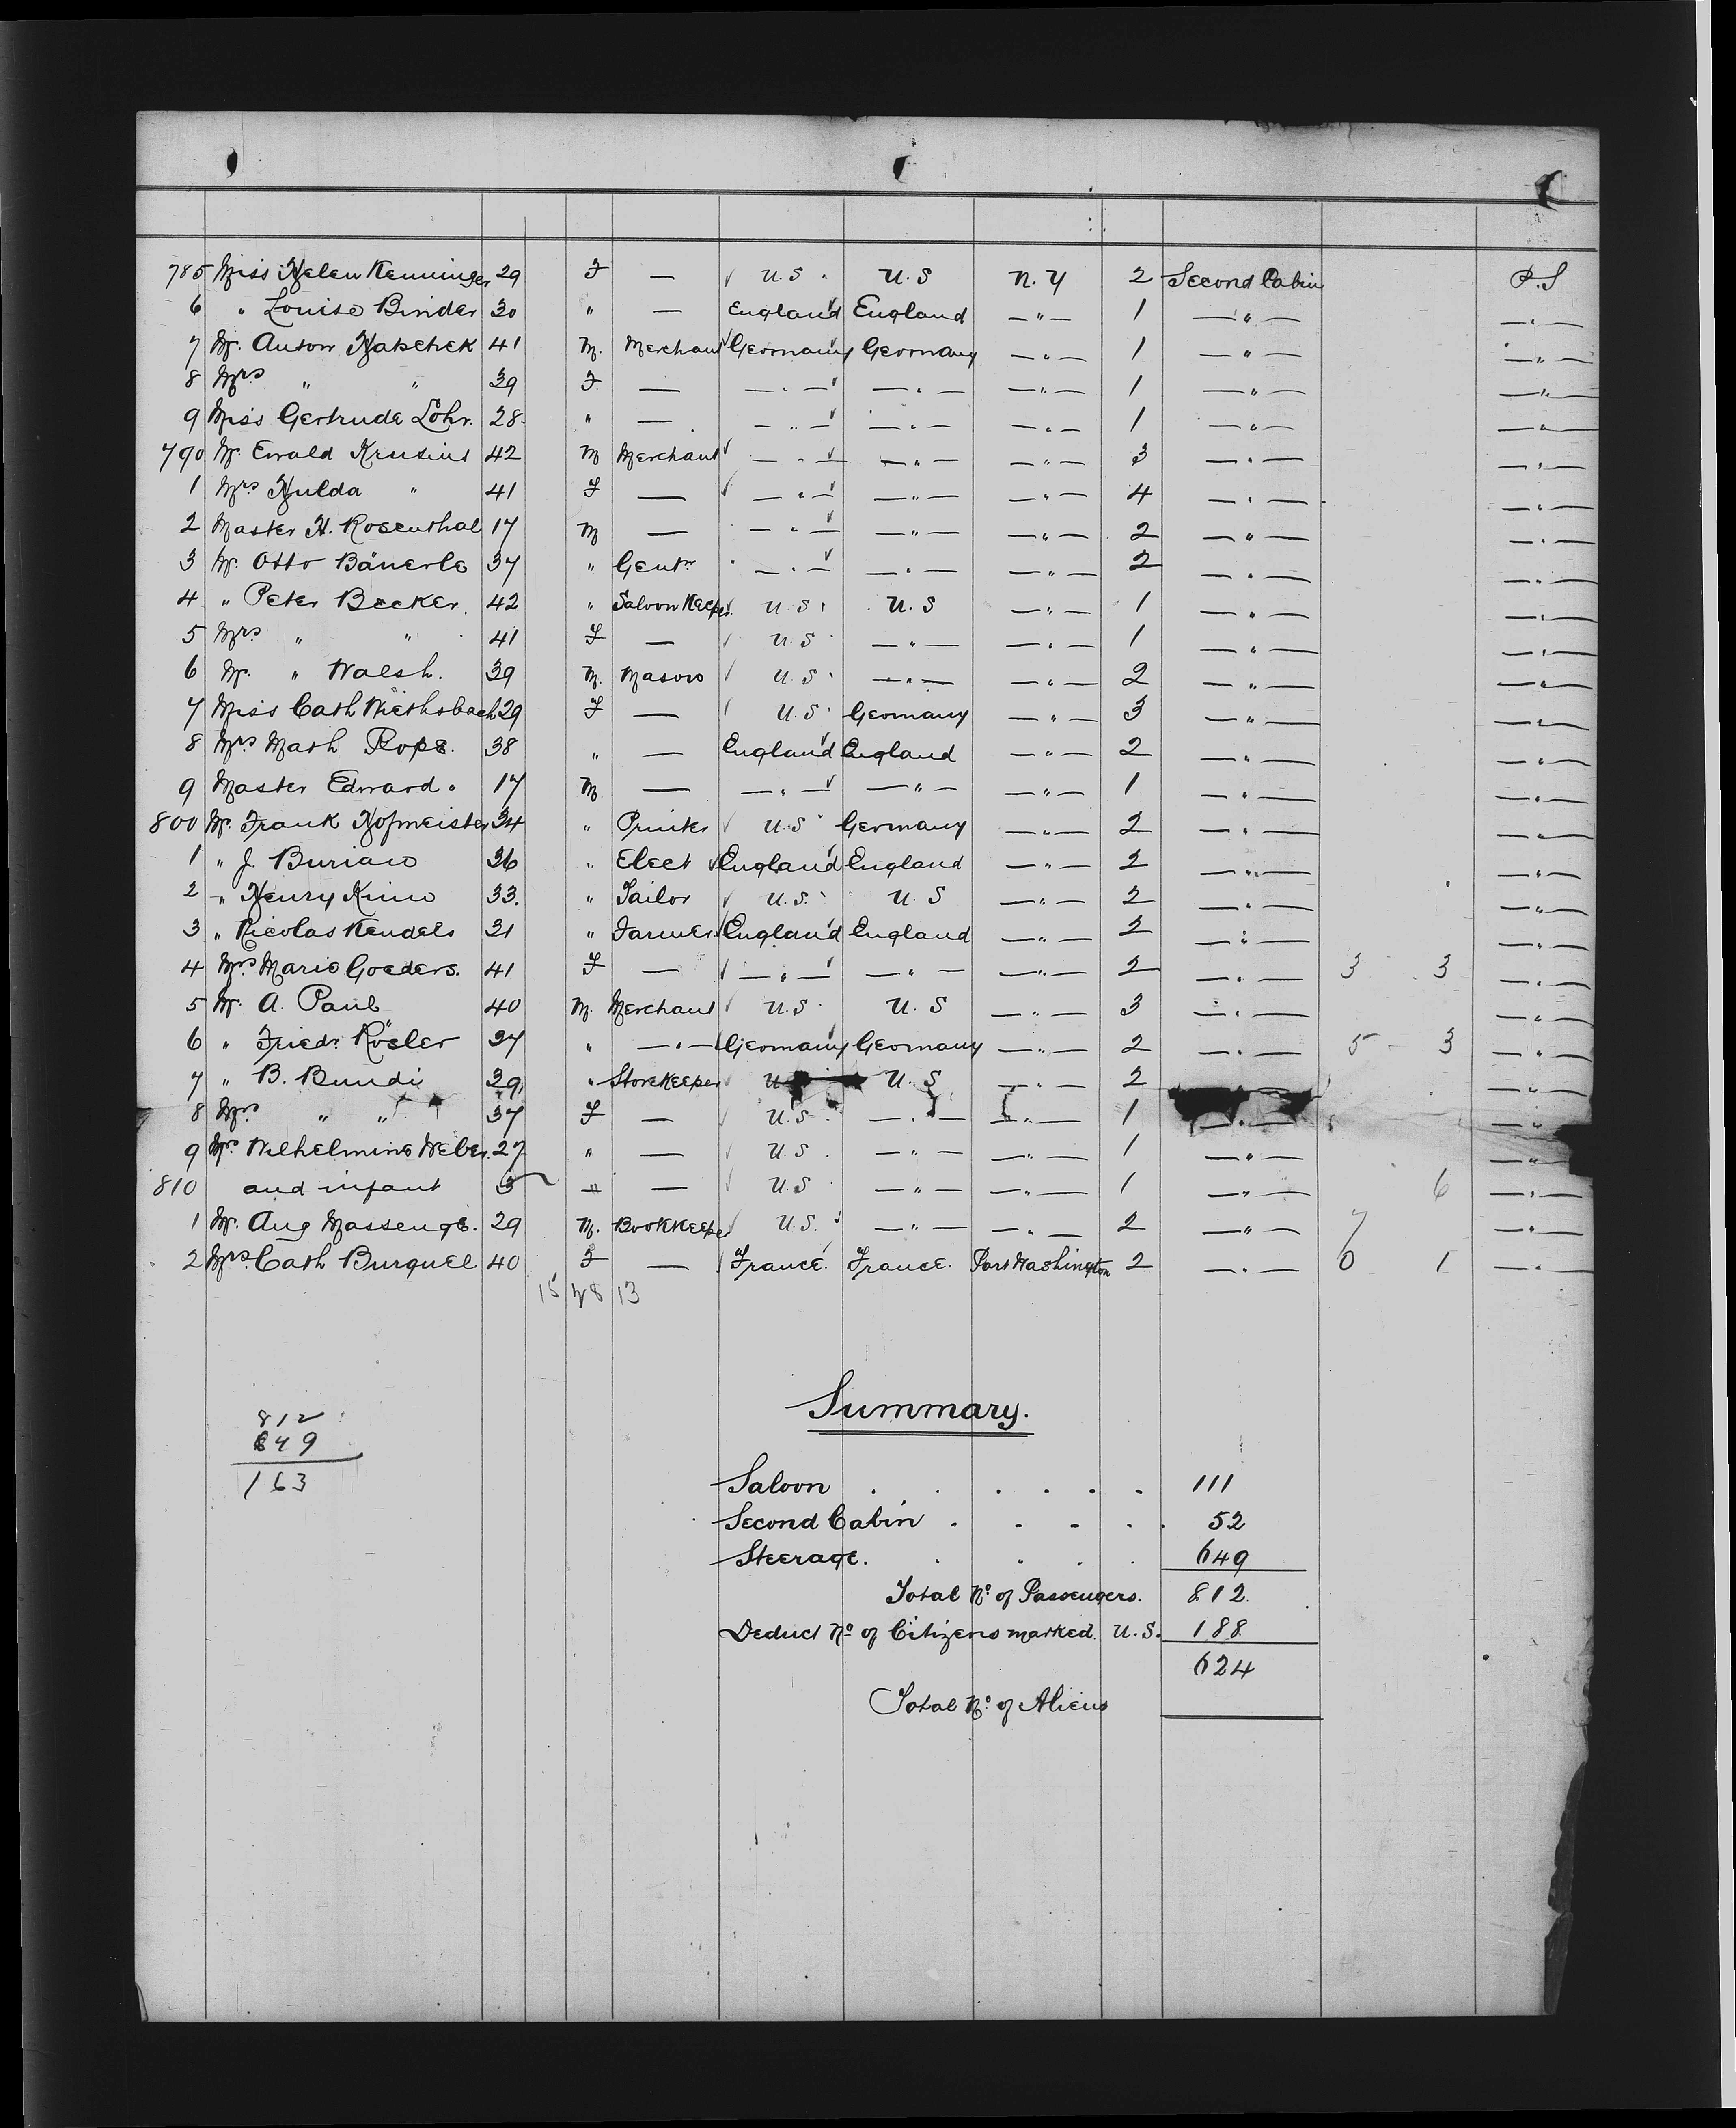 785 Miss Helen Kenninger 29 F — U.S. U.S N.Y 2 Second Cabin P.S
6 " Louise Binder 30 " — England England —"— 1 —"— —"—
7 Mr. Anton Hatschek 41 M. Merchant Germany Germany —"— 1 —"— —"—
8 Mrs " " 39 F — —"— —"— —"— 1 —"— —"—
9 Miss Gertrude Löhr. 28 " — —"— —"— —"— 1 —"— —"—
790 Mr. Ewald Krusius 42 M Merchant —"— —"— —"— 3 —"— —"—
1 Mrs Hulda " 41 F — —"— —"— —"— 4 —"— —"—
2 Master H. Rosenthal 17 M — —"— —"— —"— 2 —"— —"—
3 Mr. Otto Bäuerle 37 " Gentn —"— —"— —"— 2 —"— —"—
4 " Peter Becker. 42 " Saloon Keeper U.S. U.S —"— 1 —"— —"—
5 Mrs " " 41 F — U.S —"— —"— 1 —"— —"—
6 Mr. " Walsh. 39 M. Mason U.S. —"— —"— 2 —"— —"—
7 Miss Cath 29 F — U.S. Germany —"— 3 —"— —"—
8 Mrs Math Pope. 38 " — England England —"— 2 —"— —"—
9 Master Edward " 17 M — —"— —"— —"— 1 —"— —"—
800 Mr. Frank Hofmeister 34 " Printer U.S. Germany —"— 2 —"— —"—
1 " J. Burian 36 " Elect England England —"— 2 —"— —"—
2 " Henry 33. " Tailor U.S. U.S —"— 2 —"— —"—
3 " Nicolas Kendels 31 " Farmer England England —"— 2 —"— —"—
4 Mrs Marie Goeders. 41 F — —"— —"— —"— 2 —"— 3 3 —"—
5 Mr. A. Paul 40 M. Merchant U.S. U.S —"— 3 —"— —"—
6 " Friedr. Rösler 37 " —"— Germany Germany —"— 2 —"— 5 3 —"—
7 " B. Bundi 39 " Storekeeper U U.S —"— 2 —"—
8 Mrs " " 37 F — U.S. —"— —"— 1 —"— —"—
9 Mrs Wilhelmine Weber. 27 " — U.S. —"— —"— 1 —"— —"—
810 and infant 3 " — U.S. —"— —"— 1 —"— 6 —"—
1 Mr. Aug Massenge. 29 M. Bookkeeper U.S. —"— —"— 2 —"— 7 —"—
2 Mrs. Cath Burquel 40 F — France. France. Port Washington 2 —"— 0 1 —"—
15 13
Summary.
812
649
163
Saloon . . . . . . 111
Second Cabin . . . . . 52
Steerage. . . . . 649
Total No of Passengers. 812.
Deduct No of Citizens marked U.S. 188
624
Total No. of Aliens